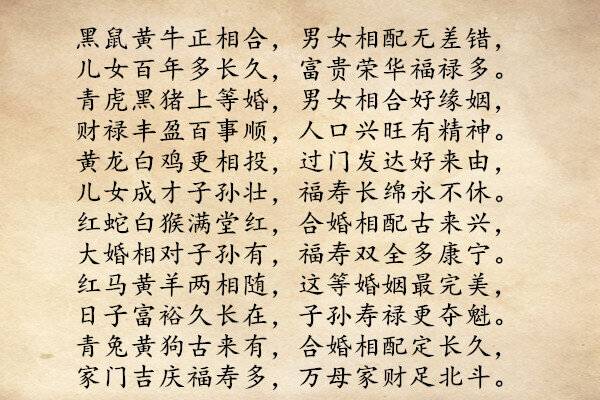 黑鼠黄牛正相合，男女相配无差错，
儿女百年多长久，富贵荣华福禄多。
青虎黑猪上等婚，男女相合好缘姻，
财禄丰盈百事顺，人口兴旺有精神。
黄龙白鸡更相投，过门发达好来由，
儿女成才子孙壮，福寿长绵永不休。
红蛇白猴满堂红，合婚相配古来兴，
大婚相对子孙有，福寿双全多康宁。
红马黄羊两相随，这等婚姻最完美，
日子富裕久长在，子孙寿禄更夺魁。
青兔黄狗古来有，合婚相配定长久，
家门吉庆福寿多，万母家财足北斗。